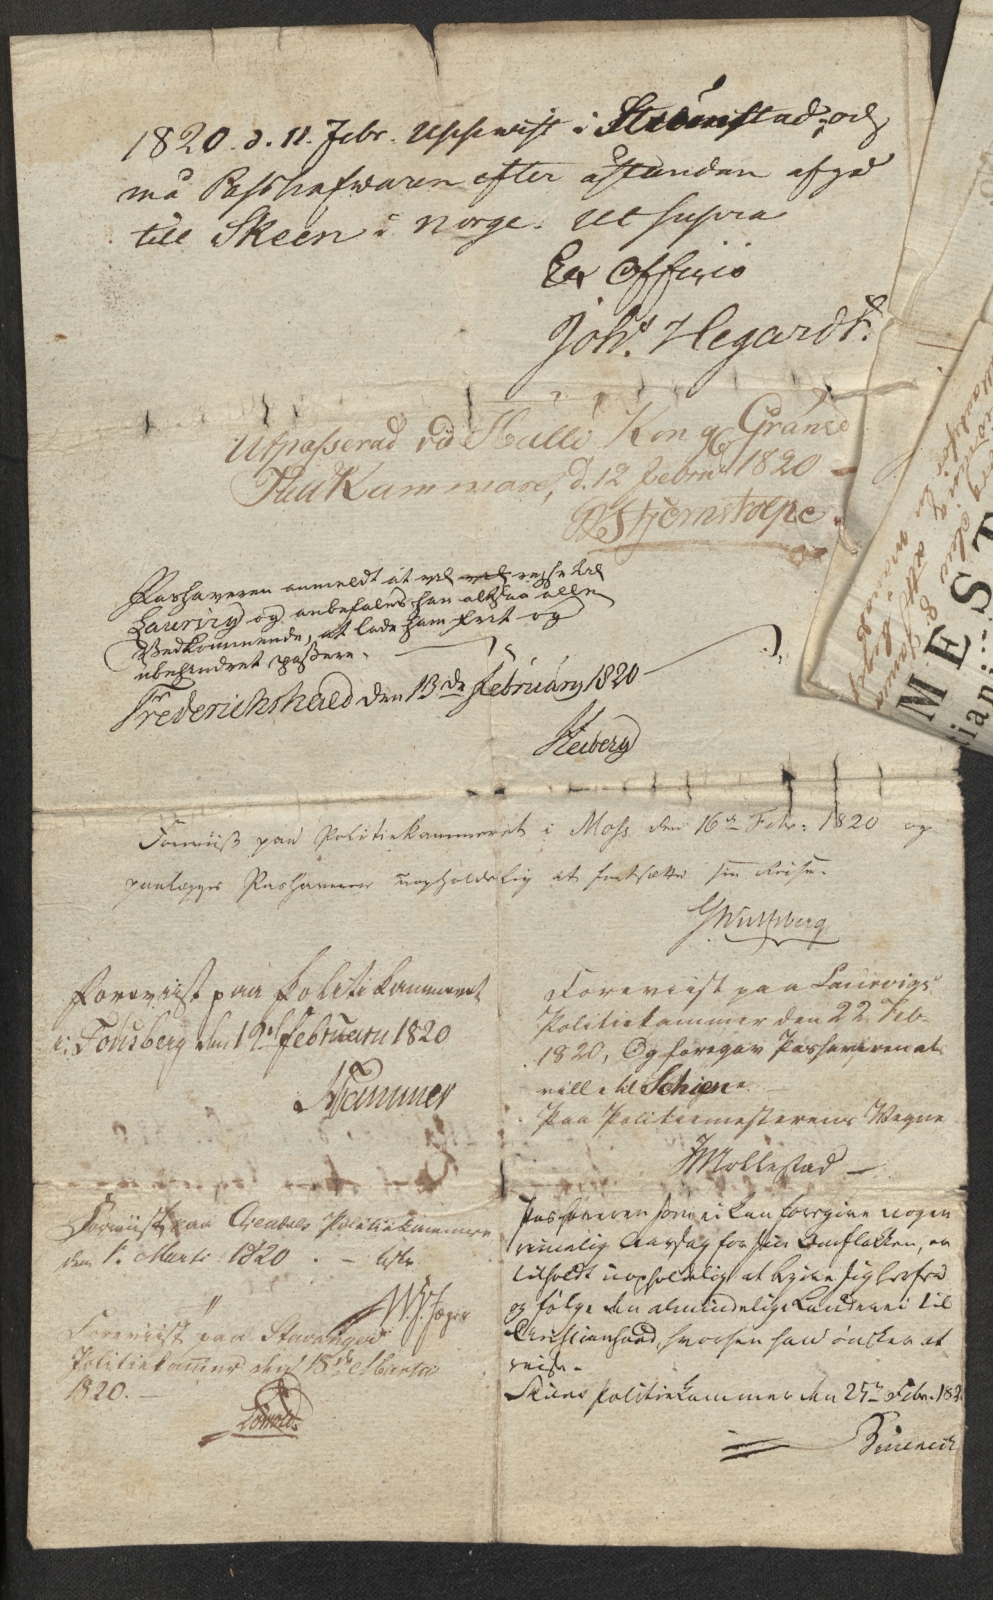 1820. d. 11. Febr. Uppwist i Strömstad, och
må Passhafwaren efter åstundan afgå
till Skeen i Norge. Ut supra
Ex Officio
Joh.s Hegardt.
Utpasserad vid Hälle Kongl. Gränse
Tull Kammare, d. 12 Februari 1820
Stjernstolpe
Pashaveren anmeldt at vil rejse til
Laurvig og anbefales han altsaa alle
Vedkommende, at lade ham frit og
ubehindret passere.
Frederichshald den 13de February 1820
Heiberg
Foreviist paa Politiekammeret i Moss den 16de Febr: 1820 og
paalægges Pashaveren uopholdelig at fortsætte sin Reise.
G Wulfsberg
Foreviist paa Politikammeret
i Tonsberg den 19de Februari 1820
Hammer
Foreviist paa Laurvigs
Politiekammer den 22 Feb
1820, Og foregav Pashaveren at
ville til Schien.
Paa Politiemesterens Vegne
Mollestad
Foreviist paa Arendals Politiekammer
den 1. Marti 1820.
Foreviist paa Stavanger
Politiekammer den 18de Martii
1820.
Pashaveren som ei kan foregive nogen
rimelig Aarsag for sin Omflakken, er
tilholdt uopholdelig at begive sig herfra
og følge den almindelige Landevei til
Christiansand, hvorhen han ønsker at
reise.
Skiens Politiekammer den 25de Febr. 182
M E S T
tiani